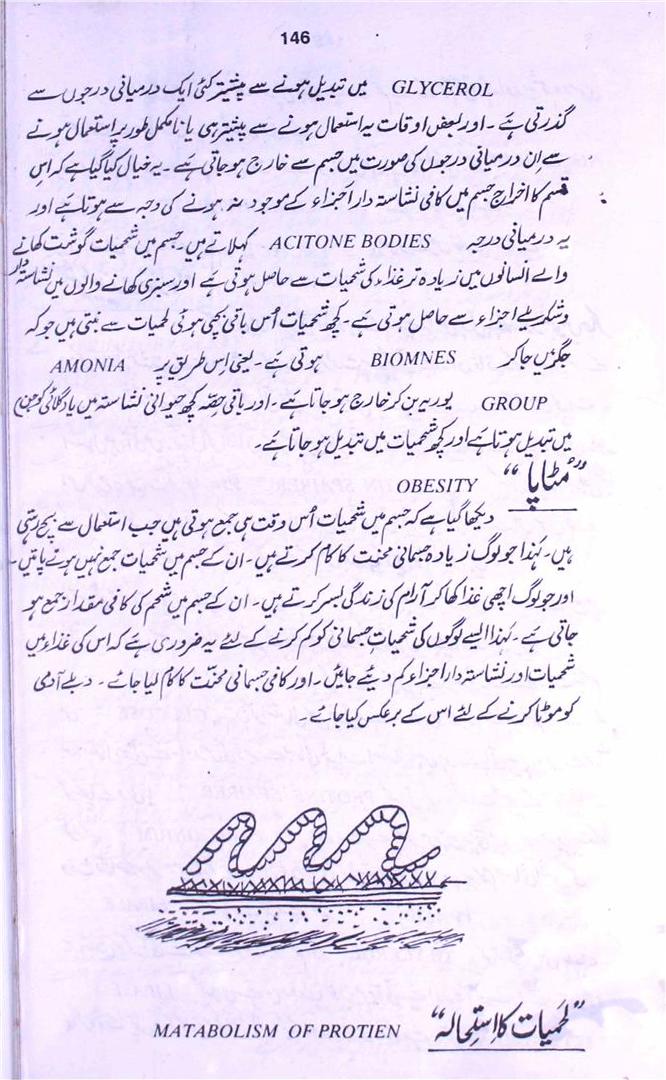 146
GLYCEROL میں تبدیل ہونے سے پیشتر کئی ایک درمیانی درجوں سے
گذرتی ہے۔ اور بعض اوقات یہ استعمال ہونے سے پیشتر ہی یا نامکمل طور پر استعمال ہونے
سے اِن درمیانی درجوں کی صورت میں جسم سے خارج ہو جاتی ہے۔ یہ خیال کیا گیا ہے کہ اس
قسم کا اخراج جسم میں کافی نشاستہ دار اجزاء کے موجود نہ ہونے کی وجہ سے ہوتا ہے اور
یہ درمیانی درجہ ACITONE BODIES کہلاتے ہیں۔ جسم میں شحمیات گوشت کھانے
والے انسانوں میں زیادہ تر غذاء کی شحمیات سے حاصل ہوتی ہے اور سبزی کھانے والوں میں نشاستہ دار
و شکریلے اجزاء سے حاصل ہوتی ہے۔ کچھ شحمیات اُس باقی بچی ہوئی لحمیات سے بنتی ہیں جو کہ
جگر میں جا کر BIOMNES ہوتی ہے۔ یعنی اس طریق پر AMONIA
GROUP یوریہ بن کر خارج ہو جاتا ہے۔ اور باقی حصّہ کچھ حیوانی نشاستہ میں یا گلائی کوجن)
میں تبدیل ہوتا ہے اور کچھ شحمیات میں تبدیل ہو جاتا ہے۔
”مُٹاپا“ OBESITY
دیکھا گیا ہے کہ جسم میں شحمیات اُس وقت ہی جمع ہوتی ہیں جب استعمال سے بچ رہتی
ہیں۔ لہٰذا جو لوگ زیادہ جسمانی محنت کا کام کرتے ہیں۔ ان کے جسم میں شحمیات جمع نہیں ہونے پاتیں۔
اور جو لوگ اچھی غذا کھا کر آرام کی زندگی بسر کرتے ہیں۔ ان کے جسم میں شحم کی کافی مقدار جمع ہو
جاتی ہے۔ لہٰذا ایسے لوگوں کی شحمیاتِ جسمانی کو کم کرنے کے لئے یہ ضروری ہے کہ اس کی غذاء میں
شحمیات اور نشاستہ دار اجزاء کم دیئے جائیں۔ اور کافی جسمانی محنت کا کام لیا جائے۔ دبلے آدمی
کو موٹا کرنے کے لئے اس کے برعکس کیا جائے۔
”لحمیات کا اِستحالہ“ MATABOLISM OF PROTIEN